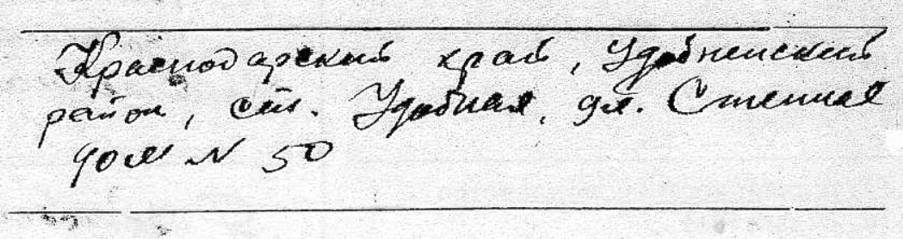 Краснодарский край, Удобненский
район, ст. Удобная, ул. Степная
дом N 50